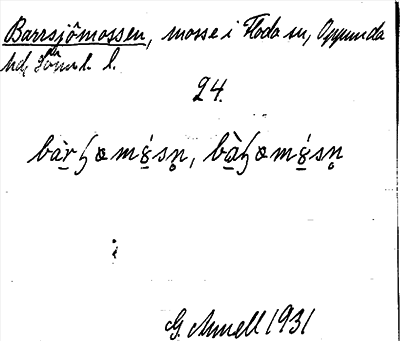 Barrsjömossen, mosse i Floda sn, Oppunda
hd, Söm l. l.
24.
bàrɧømósn̥, bàɧømósn̥
G. Annell 1931